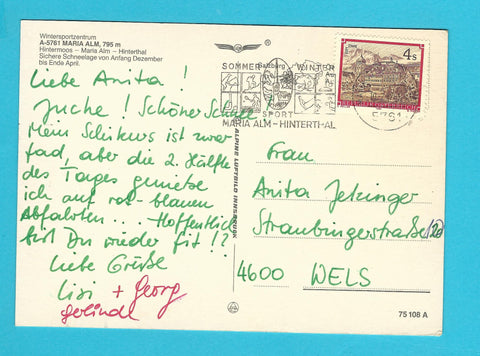 Wintersportzentrum
A-5761 MARIA ALM, 795 m
Hintermoos - Maria Alm - Hinterthal
Sichere Schneelage von Anfang Dezember
bis Ende April.
Liebe Anita!
Juche! Schöner Schnee!
Mein Schikurs ist zwar
fad, aber die 2. Hälfte
des Tages genieße
ich auf rot-blauen
Abfahrten... Hoffentlich
bist Du wieder fit!?
Liebe Grüße
Lisi + Georg
Gerlinde
ALPINE LUFTBILD INNSBRUCK
®
SOMMER Salzburg WINTER
SPORT
MARIA ALM-HINTERTHAL
5761
4 S
Frau
Anita Jetzinger
Straubingerstraße
4600 WELS
75 108 A